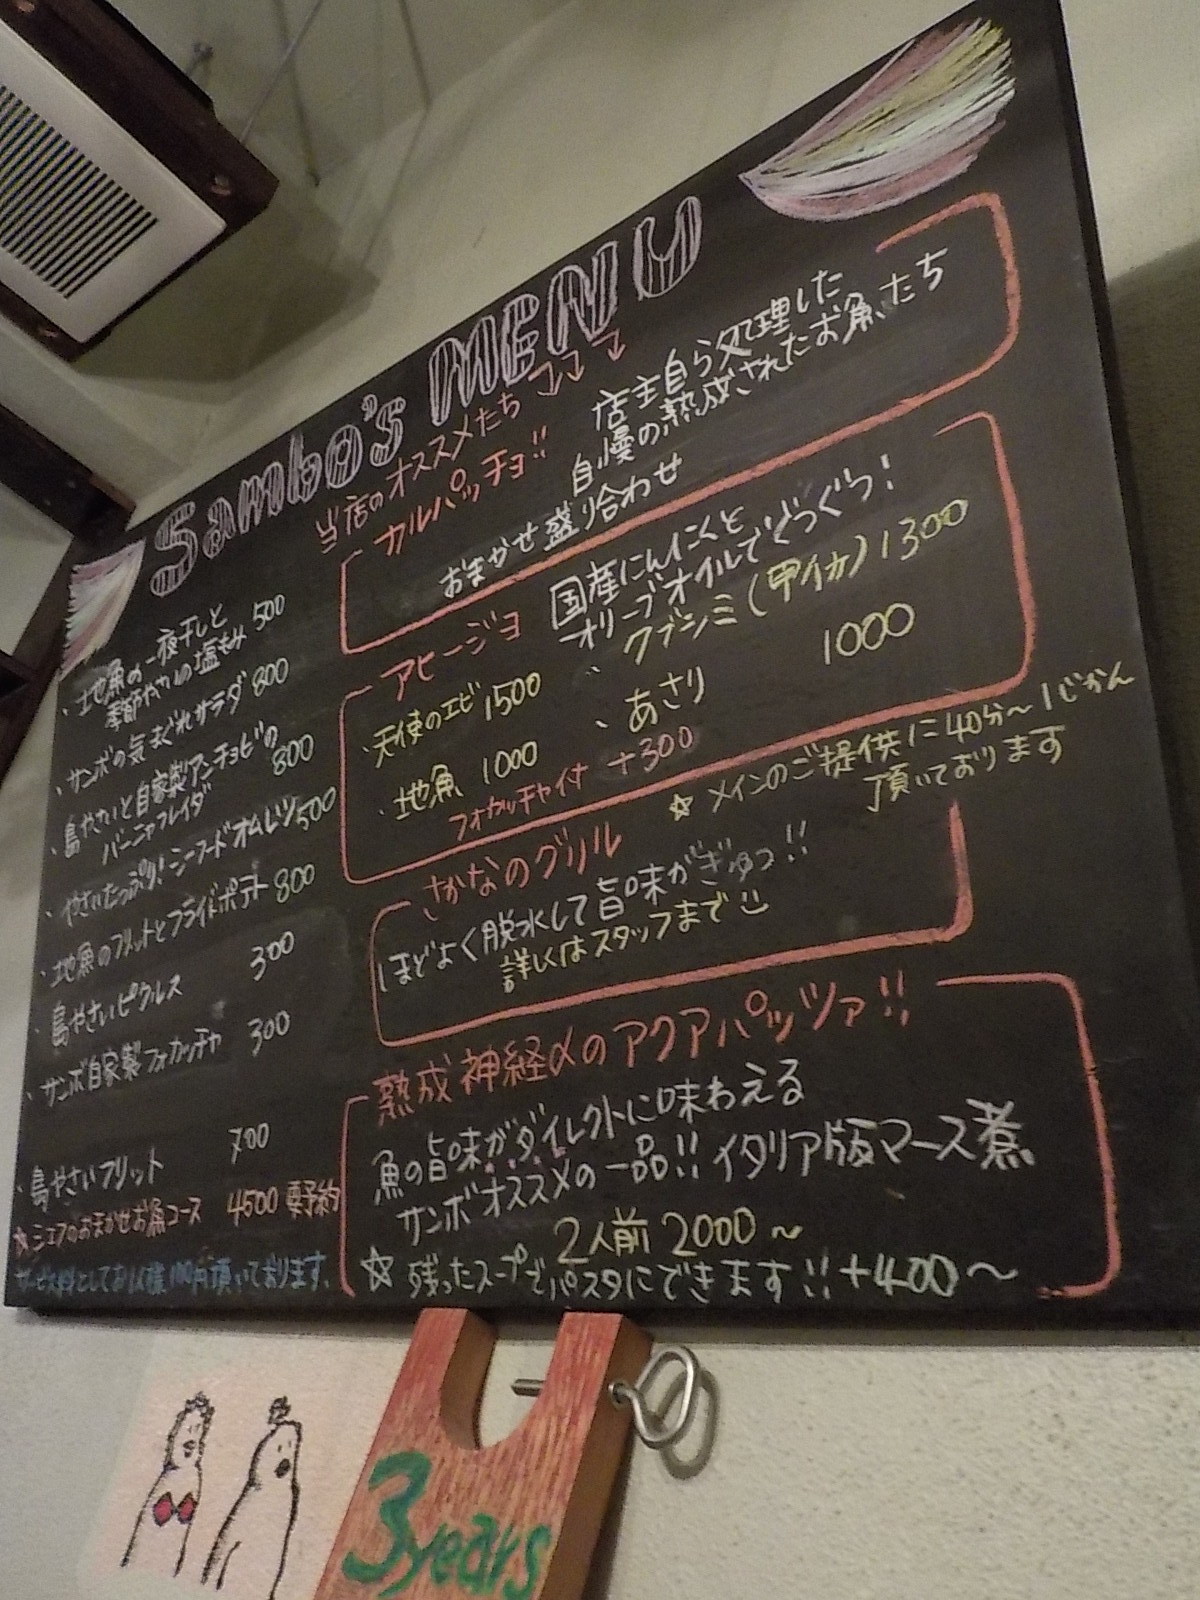 Sambo's MENU
当店のオススメたち
・地魚の一夜干しと
季節やさいの塩もみ 500
・サンボの気まぐれサラダ 800
・島やさいと自家製アンチョビの
バーニャフレイダ 800
・やさいたっぷり!シーフードオムレツ 500
・地魚のフリットとフライドポテト 800
・島やさいピクルス 300
・サンボ自家製フォカッチャ 300
・島やさいフリット 700
☆シェフのおまかせお魚コース 4500 要予約
サービス料としてお1人様100円頂いております。
カルパッチョ!!
店主自ら処理した
自慢の熟成されたお魚たち
おまかせ盛り合わせ
アヒージョ
国産にんにくと
オリーブオイルでぐつぐつ!
・天使のエビ 1500
・クブシミ(甲イカ) 1300
・地魚 1000
・あさり 1000
フォカッチャ付 +300
☆メインのご提供に40分〜1じかん
頂いております
さかなのグリル
ほどよく脱水して旨味がぎゅっ!!
詳しくはスタッフまで
熟成神経〆のアクアパッツァ!!
魚の旨味がダイレクトに味わえる
サンボオススメの一品!! イタリア版マース煮
2人前 2000〜
☆残ったスープでパスタにできます!!+400〜
3years